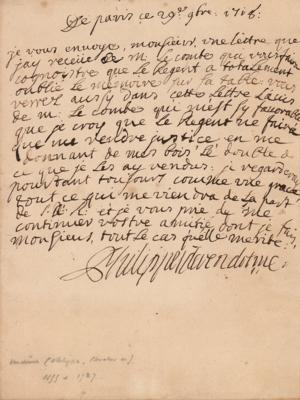 De paris ce 29e 9bre 1716:
je vous envoye, monsieur, une lettre que
jay receüe de M. le comte qui
connoistre que le Regent a totalement
oublié le memoire sur sa table. vous
verrez aussy dans cette lettre
de m. le comte qui mest sy favorable
que je croy que le Regent ne
que me rendre justice en me
donnant de mes bois le double de
ce que je les ay vendu. je regarderay
pourtant toujours comme une grace
tout ce qui me viendra de la part
de et je vous prie de me
continuer vostre amitié dont je fais,
monsieur, tout le cas quelle merite.
Philippe de vendosme